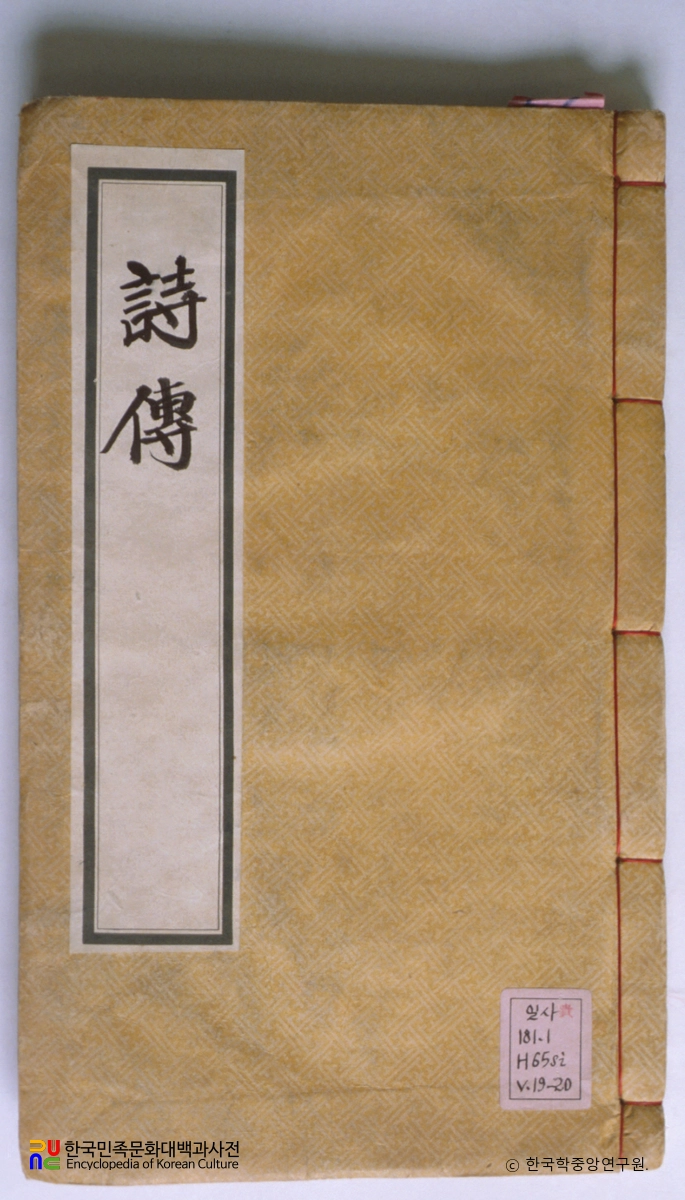 詩傳
일사 貴
181.1
H65si
v.19-20
한국민족문화대백과사전
Encyclopedia of Korean Culture
© 한국학중앙연구원.